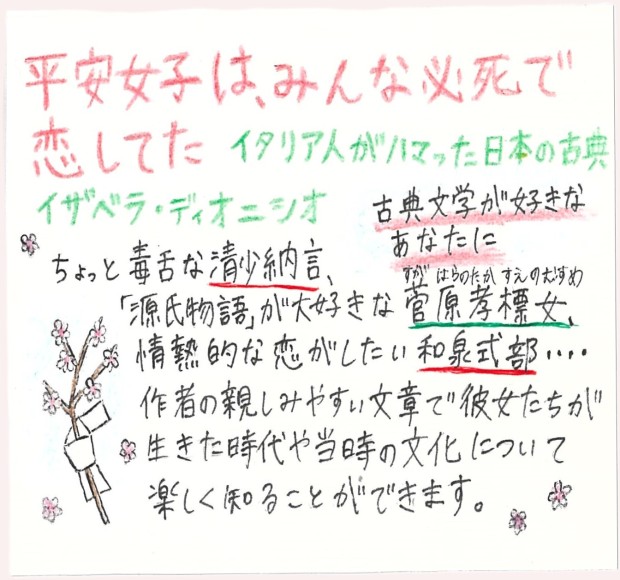 平安女子は、みんな必死で
恋してた イタリア人がハマった日本の古典
イザベラ・ディオニシオ
古典文学が好きな
あなたに
ちょっと毒舌な清少納言、
すが はらのたか すえのむすめ
「源氏物語」が大好きな菅原孝標女、
情熱的な恋がしたい和泉式部‥‥
作者の親しみやすい文章で彼女たちが
生きた時代や当時の文化について
楽しく知ることができます。